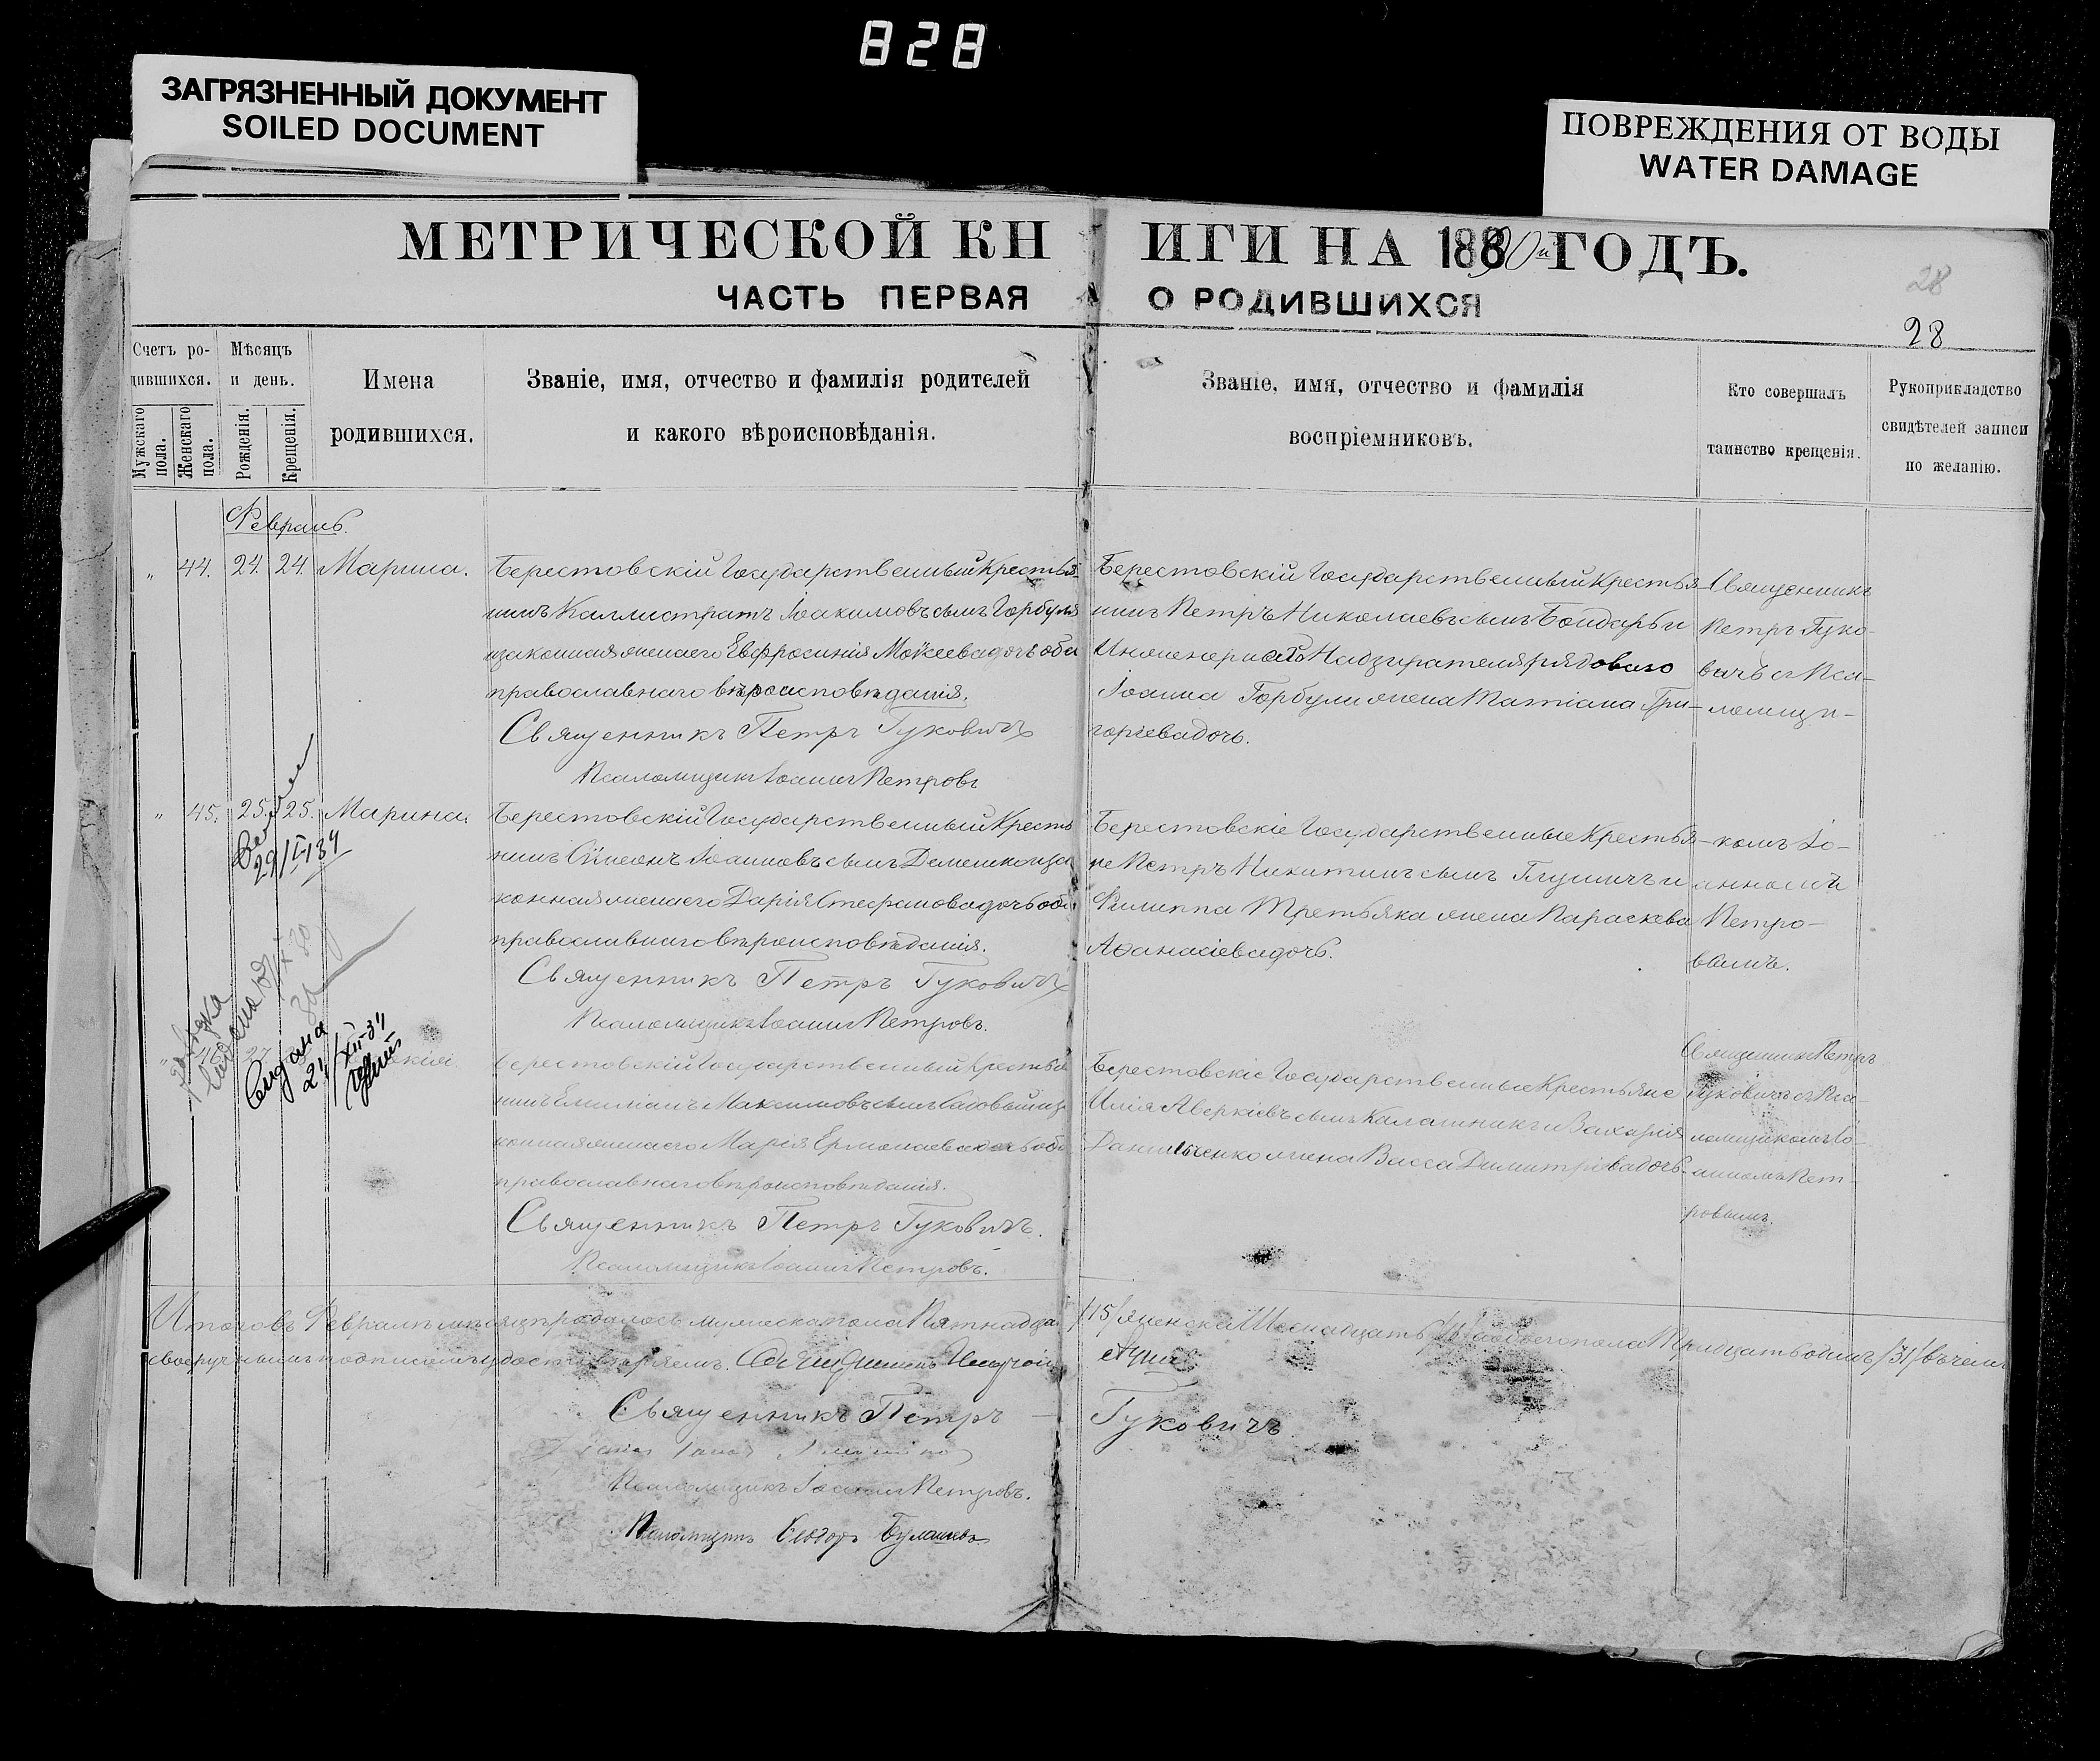 828
ЗАГРЯЗНЕННЫЙ ДОКУМЕНТ
SOILED DOCUMENT
ПОВРЕЖДЕНИЯ ОТ ВОДЫ
WATER DAMAGE
МЕТРИЧЕСКОЙ КНИГИ НА 1890й ГОДЪ.
ЧАСТЬ ПЕРВАЯ О РОДИВШИХСЯ
28
28
Счетъ родившихся.
Мужскаго пола.
Женскаго пола.
Мѣсяцъ и день.
Рожденія.
Крещенія.
Имена родившихся.
Званіе, имя, отчество и фамилія родителей
и какого вѣроисповѣданія.
Званіе, имя, отчество и фамилія
воспріемниковъ.
Кто совершалъ
таинство крещенія.
Рукоприкладство
свидѣтелей записи
по желанію.
Февраль.
" 44. 24. 24. Марина.
Берестовскій Государственный Крестья-
нинъ Каллистратъ Іоакимовъ сынъ Горбуля
и законная жена его Евфросинія Моѵсеева дочь оба
православнаго вѣроисповѣданія.
Священникъ Петръ Гуковичъ
Псаломщикъ Іоаннъ Петровъ
Берестовскій Государственный Крестья-
нинъ Петръ Николаевъ сынъ Бондарь и
Надзирателя рядоваго
Іоанна Горбули жена Татіана Гри-
горіева дочь.
Священникъ
Петръ Гуко-
вичъ съ Пса-
ломщи-
" 45. 25. 25. Марина.
29/I-34
Берестовскій Государственный Кресть
нинъ Сѵмеонъ Іоанновъ сынъ Демешко и за
конная жена его Дарія Стефанова дочь оба
православнаго вѣроисповѣданія.
Священникъ Петръ Гуковичъ
Псаломщикъ Іоаннъ Петровъ.
Берестовскіе Государственные Крестья-
не Петръ Никитинъ сынъ и
Филиппа Третьяка жена Параскева
Аѳанасіева дочь.
комъ Іо-
анномъ
Петро-
вымъ.
21/XII-34
Берестовскій Государственный Крестья
нинъ Емиліанъ Максимовъ сынъ
конная жена его Марія Ермолаева дочь оба
православнаго вѣроисповѣданія.
Священникъ Петръ Гуковичъ.
Псаломщикъ Іоаннъ Петровъ.
Берестовскіе Государственные Крестьяне
Илія Аверкіевъ сынъ Калашникъ и Захарія
Данильченко жена Васса Димитріева дочь.
Священникъ Петръ
Гуковичъ съ Пса-
ломщикомъ Іо-
анномъ Пет-
ровымъ.
Итого въ Февралѣ мѣсяцѣ родилось мужеска пола Пятнадцать /15/ женска Шестнадцать /16/ а обоего пола Тридцать одинъ /31/ въ чемъ
своеручнымъ подписомъ удостовѣряемъ.
Священникъ Петръ Гуковичъ.
Псаломщикъ Іоаннъ Петровъ.
Псаломщикъ Ѳеодоръ